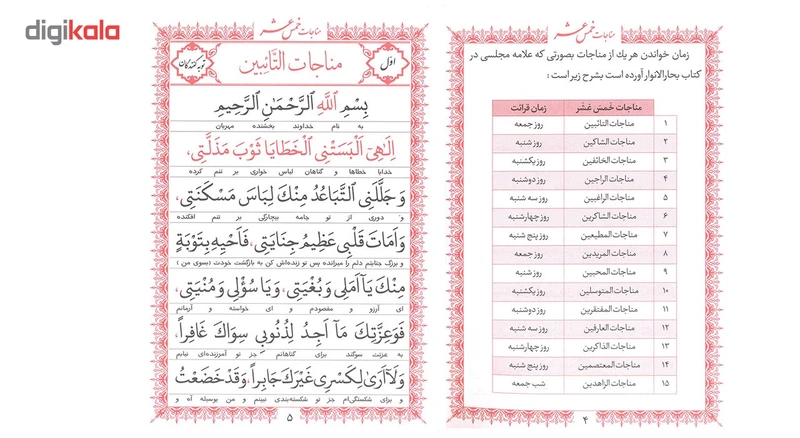 digikala
مناجات خمس عشر
زمان خواندن هر یک از مناجات بصورتی که علامه مجلسی در
کتاب بحارالانوار آورده است بشرح زیر است:
مناجات خمس عشر زمان قرائت
۱ مناجات التائبین روز جمعه
۲ مناجات الشاکین روز شنبه
۳ مناجات الخائفین روز یکشنبه
۴ مناجات الراجین روز دوشنبه
۵ مناجات الراغبین روز سه شنبه
۶ مناجات الشاکرین روز چهارشنبه
۷ مناجات المطیعین روز پنج شنبه
۸ مناجات المریدین روز جمعه
۹ مناجات المحبین روز شنبه
۱۰ مناجات المتوسلین روز یکشنبه
۱۱ مناجات المفتقرین روز دوشنبه
۱۲ مناجات العارفین روز سه شنبه
۱۳ مناجات الذاکرین روز چهارشنبه
۱۴ مناجات المعتصمین روز پنج شنبه
۱۵ مناجات الزاهدین شب جمعه
۴
مناجات خمس عشر
اوّل مناجات التّائبین توبه کنندگان
بِسْمِ اللَّهِ الرَّحْمَٰنِ الرَّحِيمِ
به نام خداوند بخشنده مهربان
اِلٰهِی اَلْبَسَتْنِی الْخَطایا ثَوْبَ مَذَلَّتِی،
خدایا خطاها و گناهان لباس خواری بر تنم کرده
وَ جَلَّلَنِی التَّباعُدُ مِنْكَ لِباسَ مَسْکَنَتِی،
و دوری از تو جامه بیچارگی بر تنم افکنده
وَ اَماتَ قَلْبِی عَظِیمُ جِنایَتِی، فَاَحْیِهِ بِتَوْبَةٍ
و بزرگ جنایتم دلم را میرانده پس تو زنده‌اش کن به بازگشت خودت (بسوی من)
مِنْكَ یا اَمَلِی وَ بُغْیَتِی، وَ یا سُؤْلِی وَ مُنْیَتِی،
ای آرزو و مقصودم و ای خواسته و آرمانم
فَوَعِزَّتِكَ ما اَجِدُ لِذُنُوبِی سِواكَ غافِراً،
به عزتت سوگند برای گناهانم جز تو آمرزنده‌ای نیابم
وَ لا اَریٰ لِکَسْرِی غَیْرَكَ جابِراً، وَ قَدْ خَضَعْتُ
و برای شکستگی‌ام جز تو شکسته‌بندی نبینم و من بوسیله آه و
۵